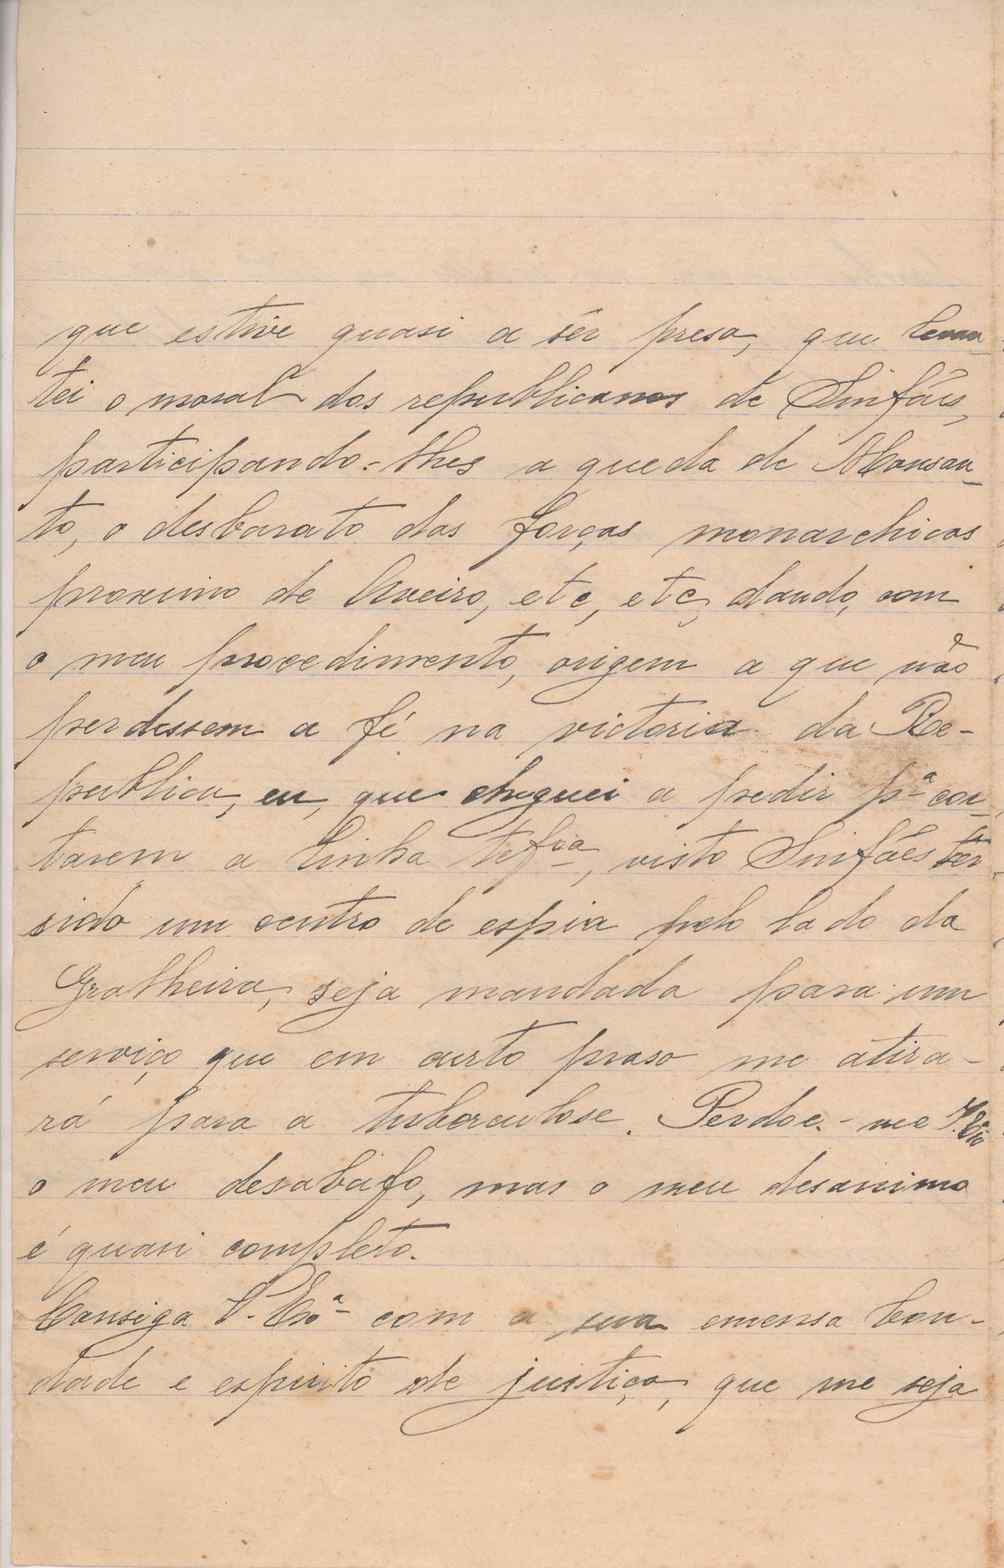 que estive quasi a sêr presa, que levan-
tei o moral dos republicanos de Sinfães,
participando-lhes a queda de Monsan-
to, o desbarato das forças monarchicas
proximo de Aveiro, etc, etc, dando, com
o meu procedimento, origem a que não
perdessem a fé na victoria da Re-
publica, eu, que cheguei a pedir pª cor-
tarem a linha telfica, visto Sinfães ter
sido um centro de espia pelo lado da
Gralheira, seja mandada para um
serviço que em curto praso me atira-
rá para a tuberculose. Perdoe-me V. Exª
o meu desabafo, mas o meu desanimo
é quasi completo.
Consiga V. Exª com a sua emensa bon-
dade e espirito de justiça, que me seja